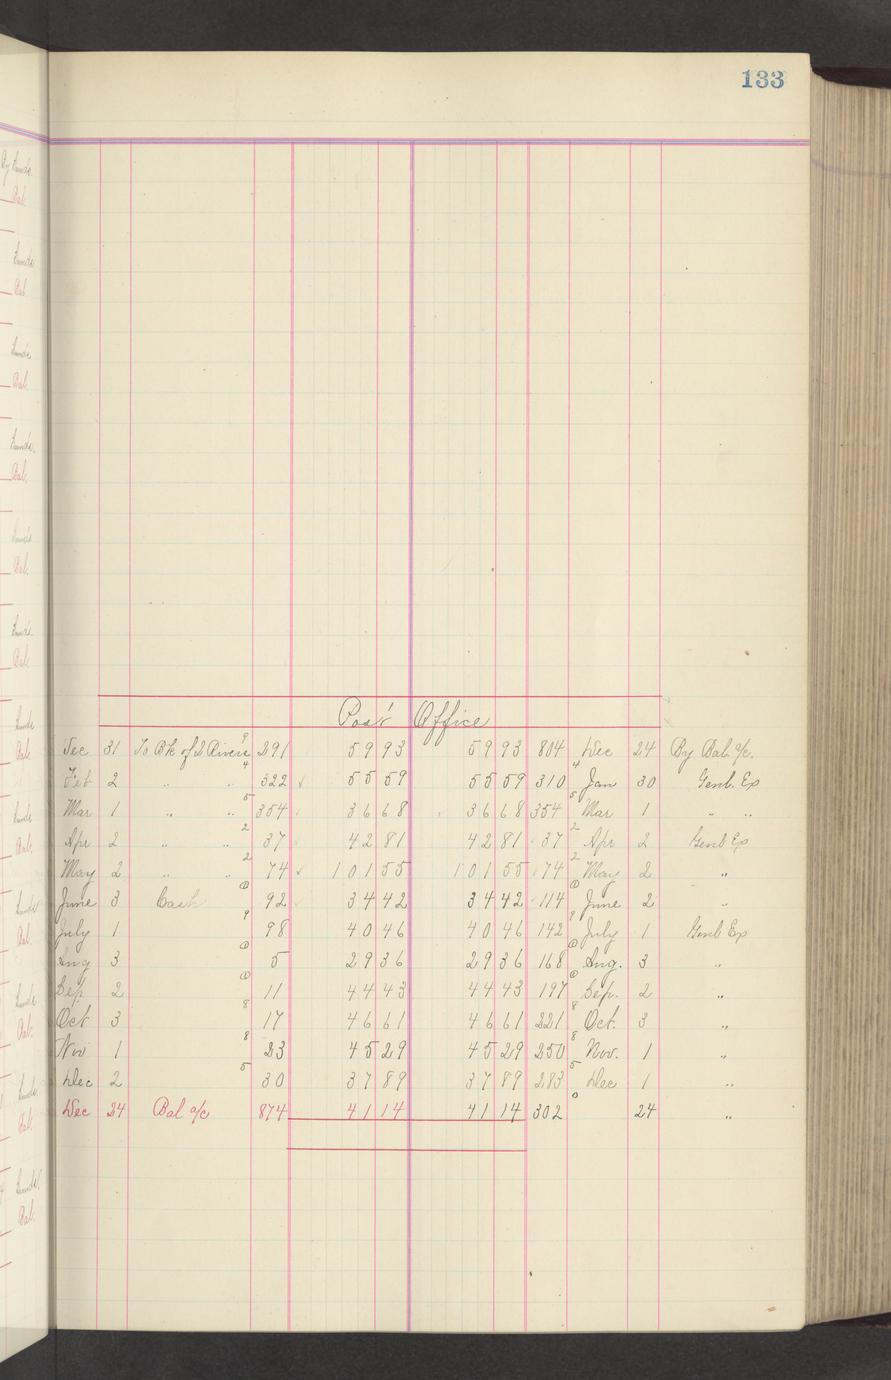 133
Post Office
Dec 31 To Bk of 3 Rivers 9 291 59 93 59 93 804 Dec 24 By Bal a/c.
Feb 2 " " 4 322 ✓ 55 59 55 59 310 4 Jan 30 Genl. Ex
Mar 1 " " 5 354 36 68 36 68 354 5 Mar 1 " "
Apr 2 " " 2 37 42 81 42 81 37 2 Apr 2 Genl Ex
May 2 " " 2 74 ✓ 101 55 101 55 74 2 May 2 "
June 3 Cash 0 92 34 42 34 42 114 0 June 2 "
July 1 9 98 40 46 40 46 142 9 July 1 Genl Ex
Aug 3 0 5 29 36 29 36 168 0 Aug. 3 "
Sep. 2 0 11 44 43 44 43 197 0 Sep. 2 "
Oct 3 8 17 46 61 46 61 221 8 Oct. 3 "
Nov 1 8 23 45 29 45 29 250 8 Nov. 1 "
Dec 2 5 30 37 89 37 89 283 5 Dec 1 "
Dec 24 Bal a/c 874 41 14 41 14 302 0 24 "